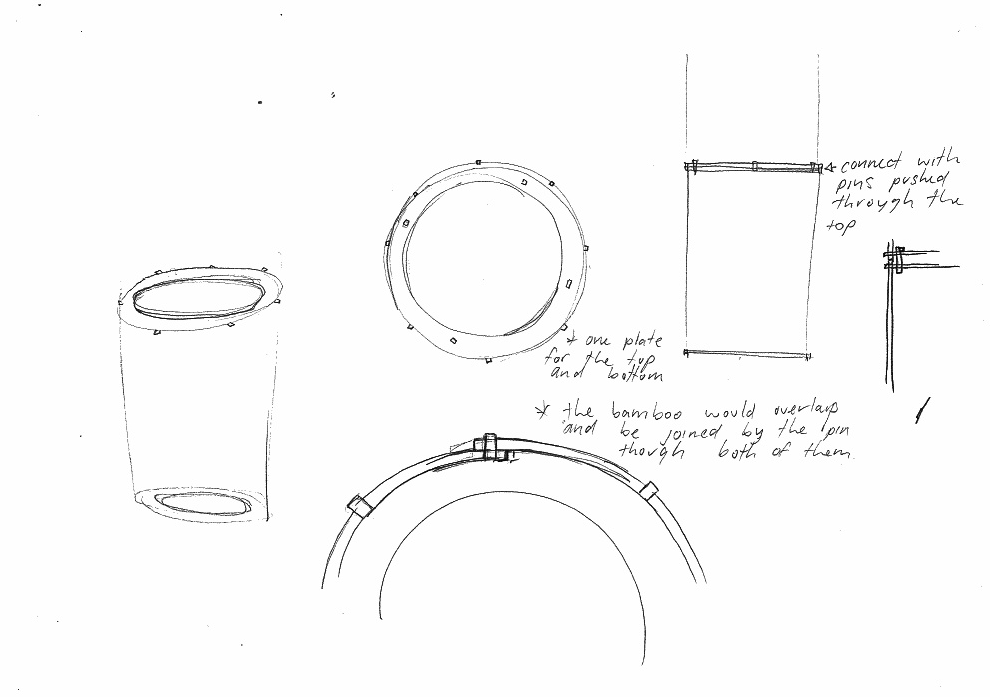 connect with
pins pushed
through the
top
* one plate
for the top
and bottom
* the bamboo would overlap
and be joined by the pin
though both of them